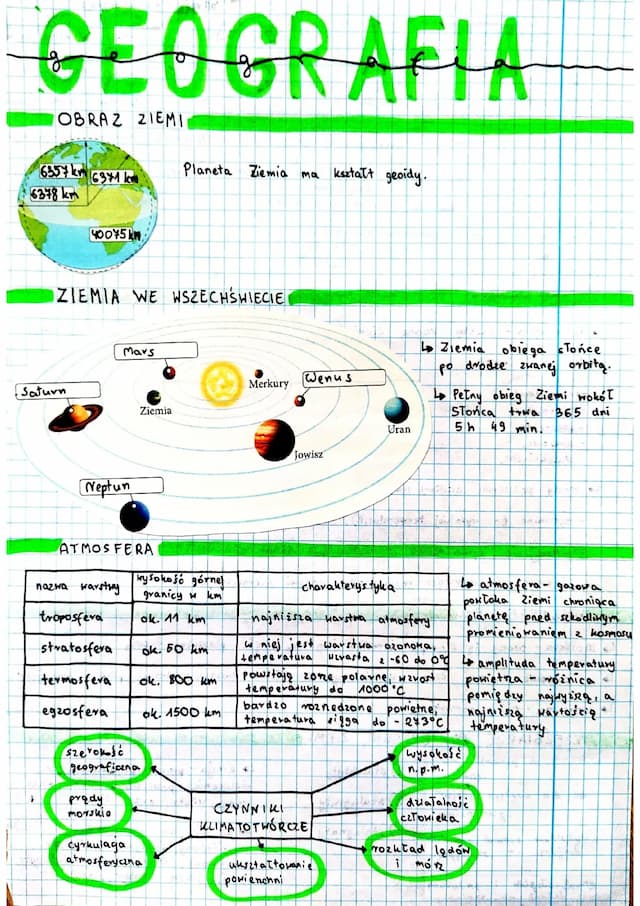 GEOGRAFIA
geografia
OBRAZ ZIEMI
6357 km
6371 km
6378 km
40075 km
Planeta Ziemia ma kształt geoidy.
ZIEMIA WE WSZECHŚWIECIE
Mars
Saturn
Ziemia
Merkury
Wenus
Uran
Jowisz
Neptun
↳ Ziemia obiega Słońce
po drodze zwanej orbitą.
↳ Pełny obieg Ziemi wokół
Słońca trwa 365 dni
5 h 49 min.
ATMOSFERA
nazwa warstwy
wysokość górnej
granicy w km
charakterystyka
troposfera
ok. 11 km
najniższa warstwa atmosfery
stratosfera
ok. 50 km
w niej jest warstwa ozonowa,
temperatura wzrasta z -60 do 0°C
termosfera
ok. 800 km
powstają zorze polarne, wzrost
temperatury do 1000°C
egzosfera
ok. 1500 km
bardzo rozrzedzone powietrze,
temperatura sięga do -273°C
↳ atmosfera - gazowa
powłoka Ziemi chroniąca
planetę przed szkodliwym
promieniowaniem z kosmosu
↳ amplituda temperatury
powietrza - różnica
pomiędzy najwyższą, a
najniższą wartością
temperatury
CZYNNIKI
KLIMATOTWÓRCZE
szerokość
geograficzna
prądy
morskie
cyrkulacja
atmosferyczna
ukształtowanie
powierzchni
wysokość
n.p.m.
działalność
człowieka
rozkład lądów
i mórz